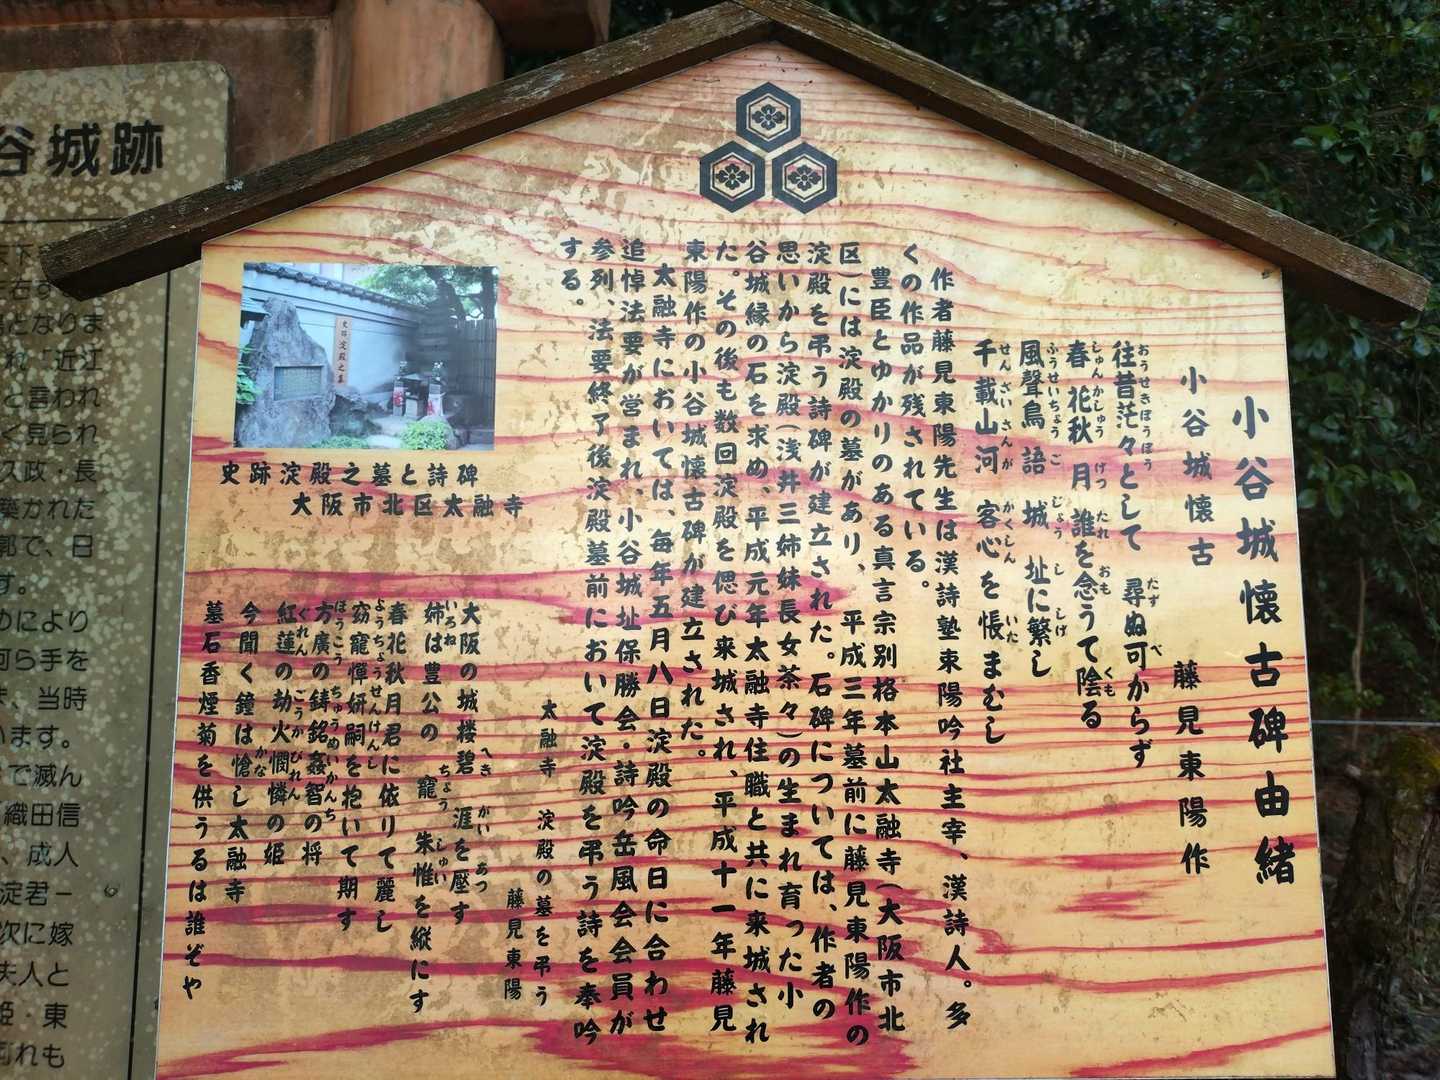 小谷城懐古碑由緒
小谷城懐古
藤見東陽作
往昔茫々として 尋ぬ可からず
おうせきぼうぼう たず べ
春花秋月 誰を念うて陰る
しゅんかしゅうげつ たれ おも くも
風聲鳥語 城址に繁し
ふうせいちょうご じょうし しげ
千載山河 客心を悵ましむ
せんざいさんが かくしん いた
作者藤見東陽先生は漢詩塾東陽吟社主宰、漢詩人。多
くの作品が残されている。
豊臣とゆかりのある真言宗別格本山太融寺(大阪市北
区)には淀殿の墓があり、平成三年墓前に藤見東陽作の
淀殿を弔う詩碑が建立された。石碑については、作者の
思いから淀殿(浅井三姉妹長女茶々)の生まれ育った小
谷城縁の石を求め、平成元年太融寺住職と共に来城され
た。その後も数回淀殿を偲び来城され、平成十一年藤見
東陽作の小谷城懐古碑が建立された。
太融寺においては、毎年五月八日淀殿の命日に合わせ
追悼法要が営まれ、小谷城址保勝会・詩吟岳風会会員が
参列、法要終了後淀殿墓前において淀殿を弔う詩を奉吟
する。
史跡淀殿之墓
史跡淀殿之墓と詩碑
大阪市北区太融寺
太融寺 淀殿の墓を弔う
藤見東陽
大阪の城楼碧涯を壓す
へき がい あつ
姉は豊公の寵 朱帷を縦にす
いろね ちょう しゅい
春花秋月君に依りて麗し
窈窕憚妍嗣を抱いて期す
ようちょうせんけんし
方廣の鋳銘姦智の将
ほうこう ちゅうめいかんち
紅蓮の劫火憫憐の姫
ぐれん ごうかびれん
今聞く鐘は愴し太融寺
かな
墓石香煙菊を供うるは誰ぞや
谷城跡
となりま
れ「近江
と言われ
く見られ
久政・長
築かれた
郭で、日
す。
めにより
何ら手を
ま、当時
います。
で滅ん
織田信
、成人
淀君ー
次に嫁
夫人と
姫・東
何れも